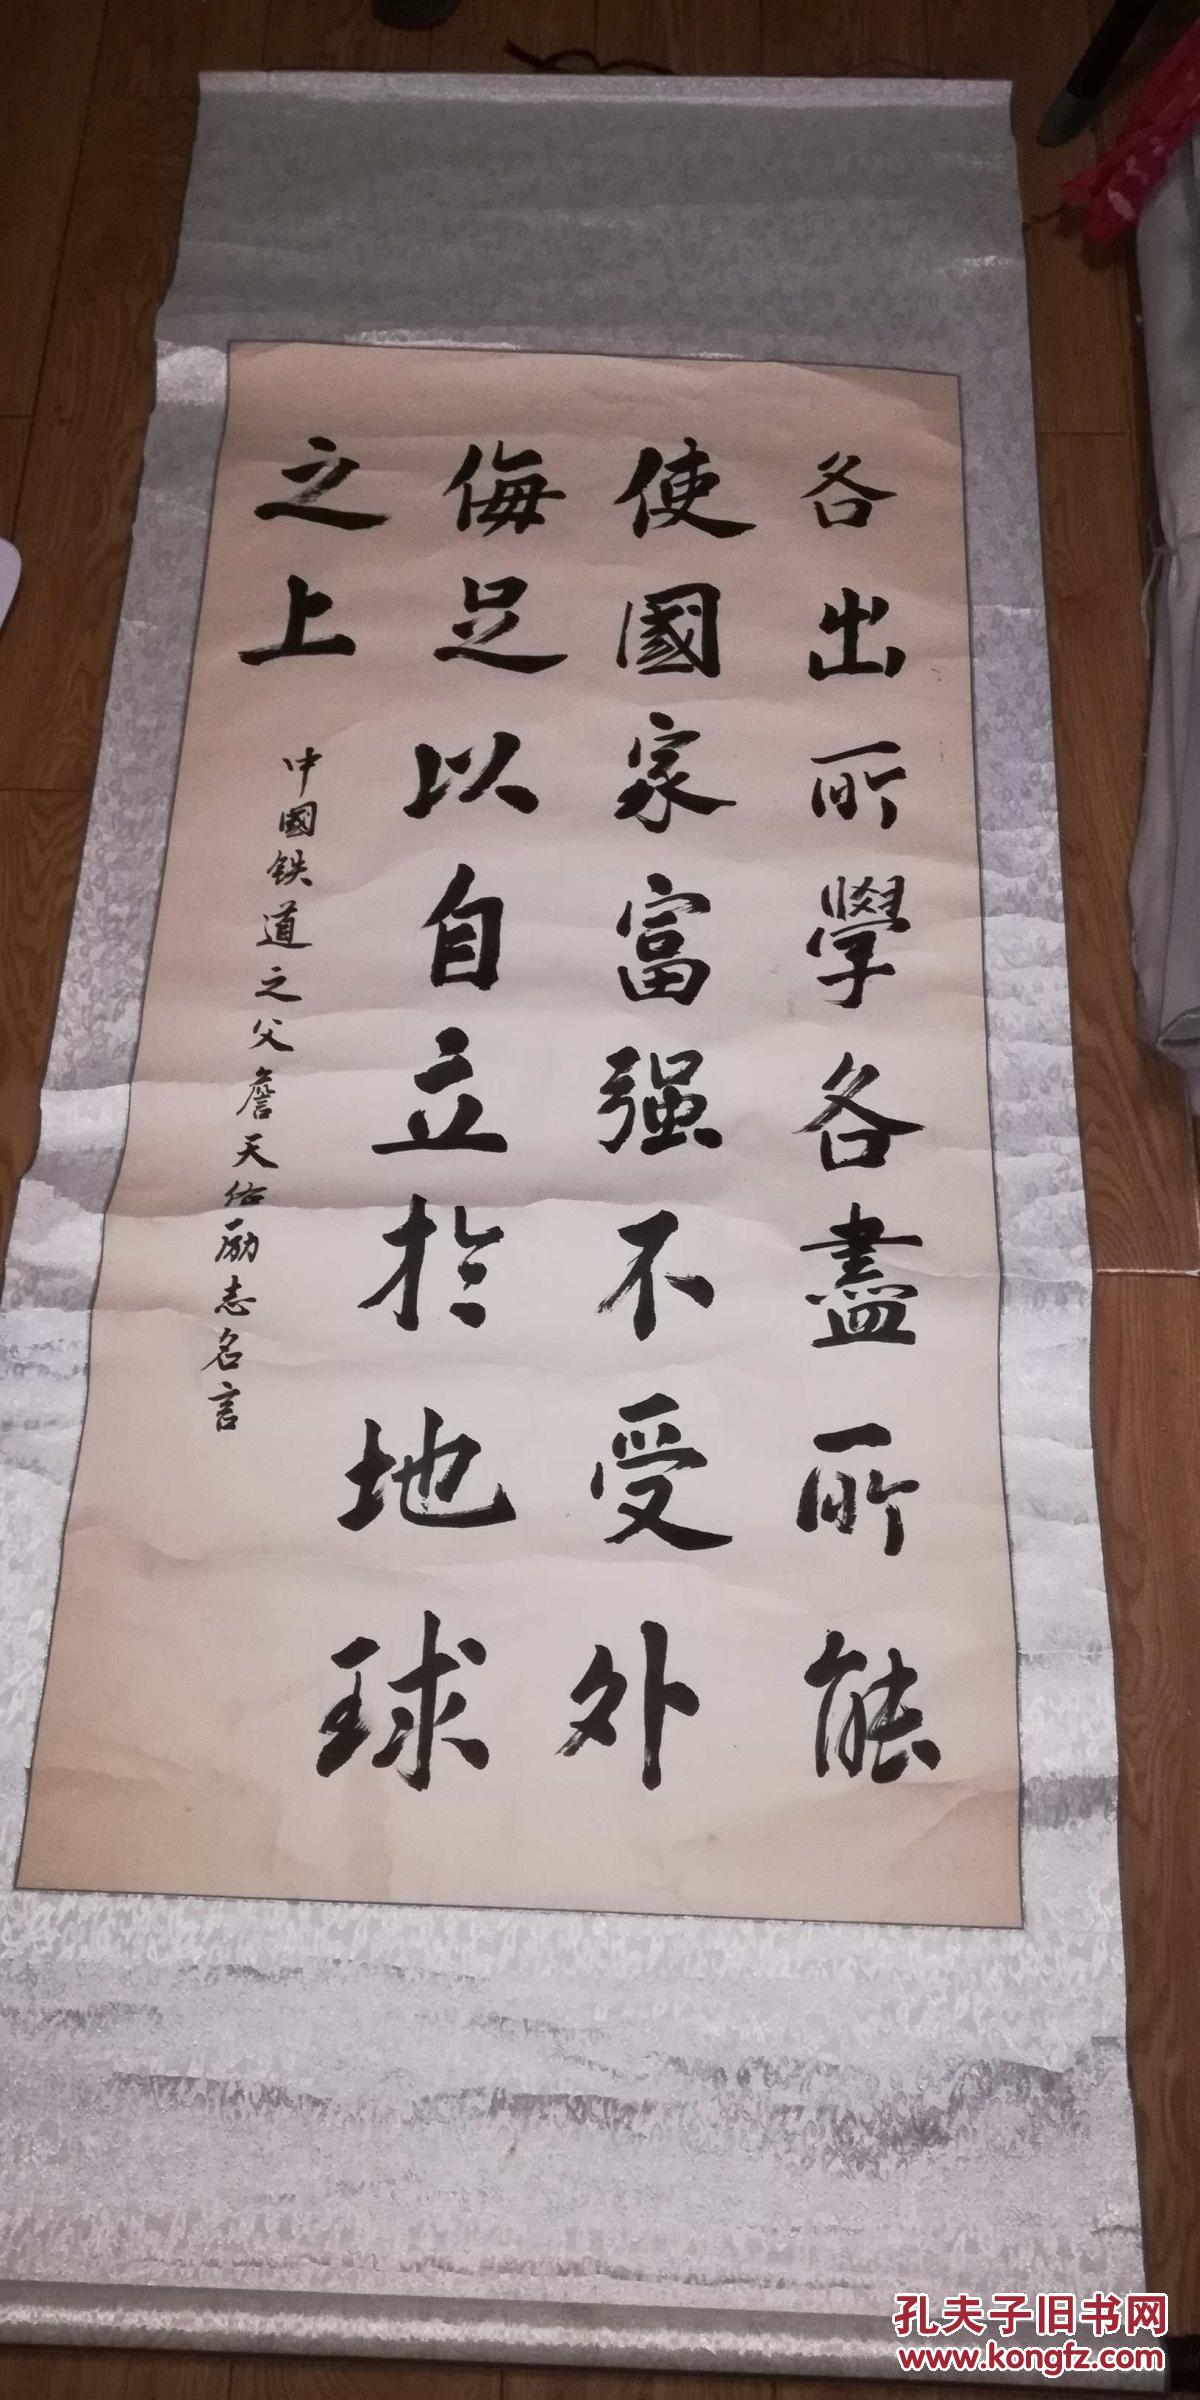 各出所學各盡所能
使國家富强不受外
侮足以自立於地球
之上
中國铁道之父詹天佑励志名言
孔夫子旧书网
www.kongfz.com